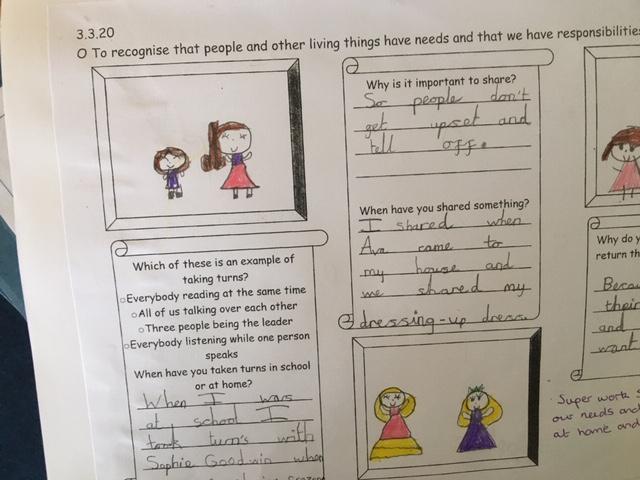 3.3.20
O To recognise that people and other living things have needs and that we have responsibilities
Why is it important to share?
So people don't
get upset and
tell off.
When have you shared something?
I shared when
Ava came to
my house and
we shared my
dressing-up dress
Which of these is an example of
taking turns?
Everybody reading at the same time
All of us talking over each other
Three people being the leader
Everybody listening while one person
speaks
When have you taken turns in school
or at home?
When I was
at school I
took turn's with
Sophie Goodwin when
Why do y
return th
Becau
their
and
want
Super work S
our needs and
at home and